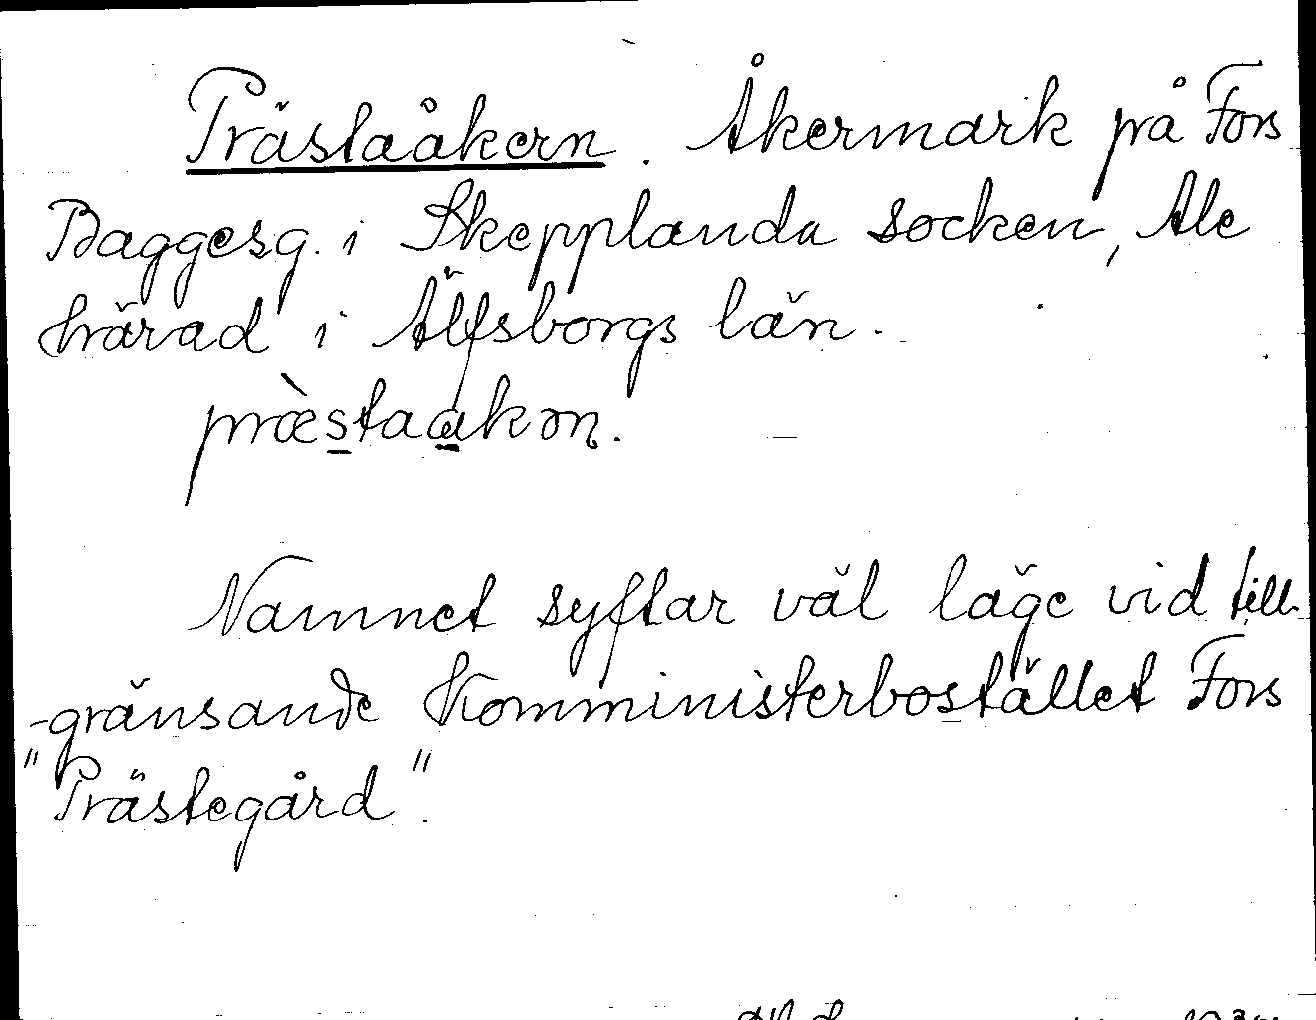 Prästaåkern. Åkermark på Fors
Baggesg. i Skepplanda socken, Ale
härad i Älfsborgs län.
præ̀staakɷn.
Namnet syftar väl läge vid till-
-gränsande Komministerbostället Fors
"Prästegård".